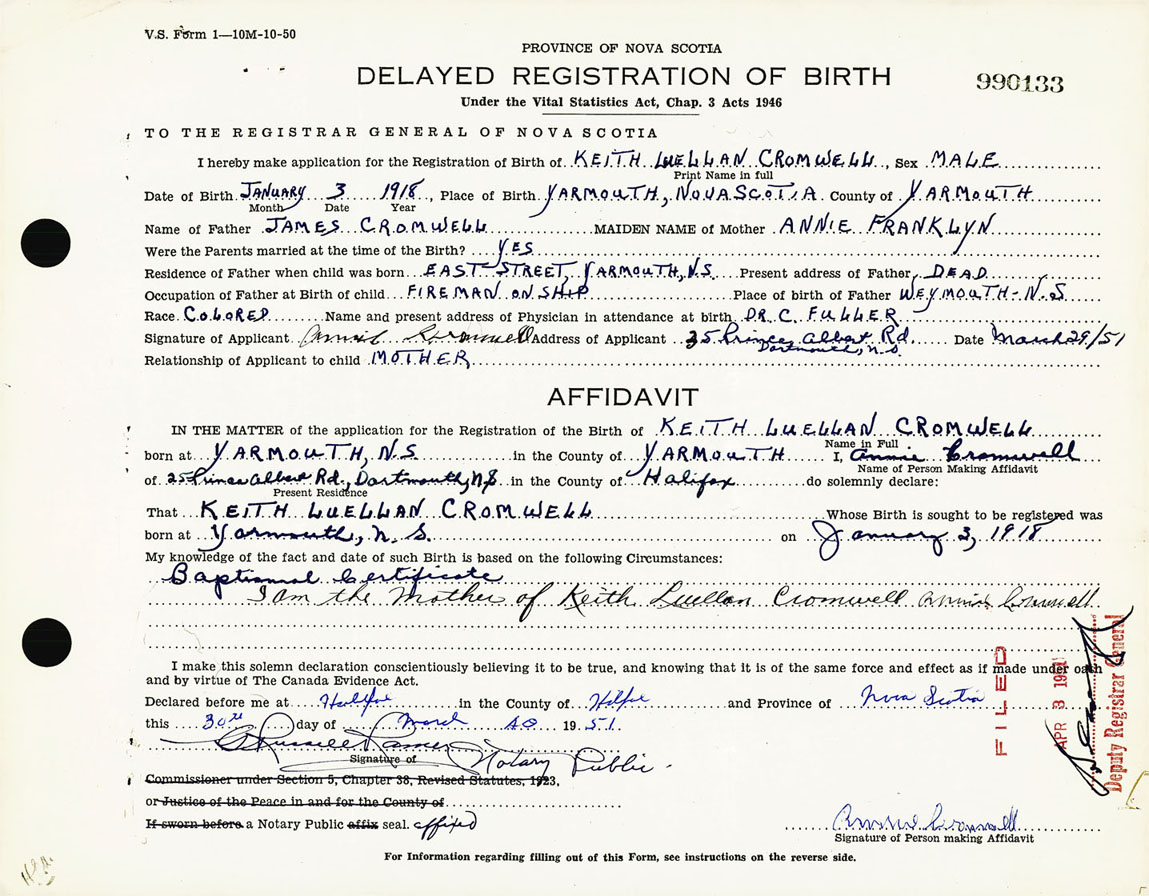 V.S. Form 1—10M-10-50
PROVINCE OF NOVA SCOTIA
DELAYED REGISTRATION OF BIRTH
990133
Under the Vital Statistics Act, Chap. 3 Acts 1946
TO THE REGISTRAR GENERAL OF NOVA SCOTIA
I hereby make application for the Registration of Birth of KEITH LUELLAN CROMWELL, Sex MALE
Print Name in full
Date of Birth JANUARY 3 1918, Place of Birth YARMOUTH, NOVA SCOTIA County of YARMOUTH
Month Date Year
Name of Father JAMES CROMWELL MAIDEN NAME of Mother ANNIE FRANKLYN
Were the Parents married at the time of the Birth? YES
Residence of Father when child was born EAST STREET, YARMOUTH, N.S. Present address of Father DEAD
Occupation of Father at Birth of child FIREMAN ON SHIP Place of birth of Father WEYMOUTH - N.S.
Race COLORED Name and present address of Physician in attendance at birth DR. C. FULLER
Signature of Applicant Annie Cromwell Address of Applicant 25 Prince Albert Rd. Date March 29/51
Dartmouth, N.S.
Relationship of Applicant to child MOTHER
AFFIDAVIT
IN THE MATTER of the application for the Registration of the Birth of KEITH LUELLAN CROMWELL
Name in Full
born at YARMOUTH, N.S in the County of YARMOUTH I, Annie Cromwell
Name of Person Making Affidavit
of 25 Prince Albert Rd., Dartmouth, N.S in the County of Halifax do solemnly declare:
Present Residence
That KEITH LUELLAN CROMWELL Whose Birth is sought to be registered was
born at Yarmouth, N.S. on January 3, 1918
My knowledge of the fact and date of such Birth is based on the following Circumstances:
Baptismal Certificate
I am the Mother of Keith Luellan Cromwell Annie Cromwell
I make this solemn declaration conscientiously believing it to be true, and knowing that it is of the same force and effect as if made under oath
and by virtue of The Canada Evidence Act.
Declared before me at Halifax in the County of Halifax and Province of Nova Scotia
this 30th day of March AD 1951
Signature of Notary Public
Commissioner under Section 5, Chapter 38, Revised Statutes, 1923,
or Justice of the Peace in and for the County of
If sworn before a Notary Public affix seal. affixed
Annie Cromwell
Signature of Person making Affidavit
For Information regarding filling out of this Form, see instructions on the reverse side.
FILED
APR 3 1951
Deputy Registrar General